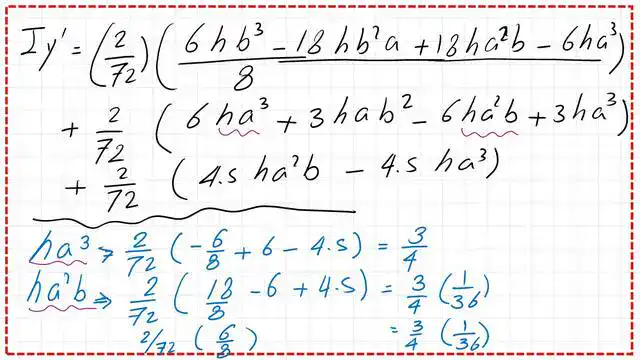 Iy' = (2/72) ( (6hb³ - 18hb²a + 18ha²b - 6ha³)/8 )
+ 2/72 ( 6ha³ + 3hab² - 6ha²b + 3ha³ )
+ 2/72 ( 4.5 ha²b - 4.5 ha³ )
ha³ → 2/72 ( -6/8 + 6 - 4.5 ) = 3/4
ha²b ⇒ 2/72 ( 18/8 - 6 + 4.5 ) = 3/4 (1/36)
2/72 ( 6/8 ) = 3/4 (1/36)